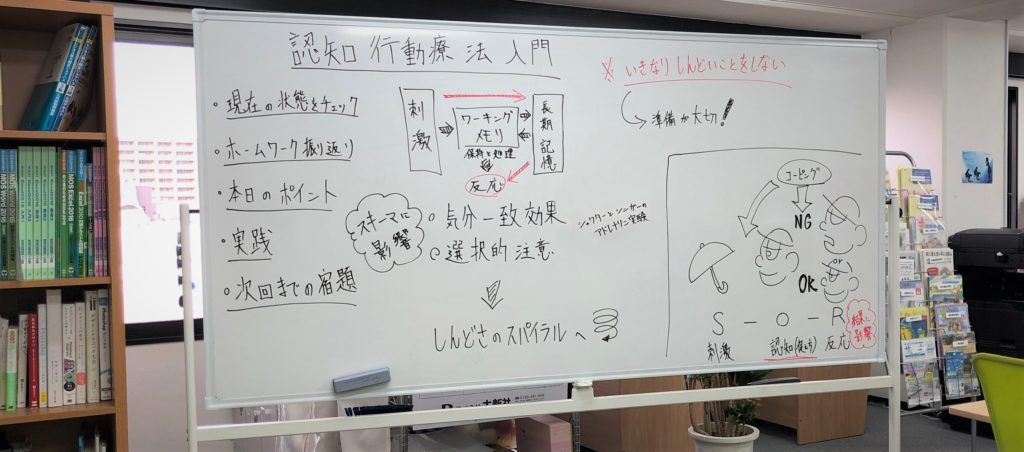 認知行動療法入門
・現在の状態をチェック
・ホームワーク振り返り
・本日のポイント
・実践
・次回までの宿題
刺激
ワーキング
メモリ
保持と処理
長期記憶
反応
スキーマに
影響
○気分一致効果
○選択的注意
シャクターとシンガーの
アドレナリン実験
しんどさのスパイラルへ
※いきなりしんどいことをしない
準備が大切!
コーピング
NG
OK
or
S - O - R
刺激
認知(捉え方)
反応
結果に
影響
MOS Word 2016
MOS Excel 2016